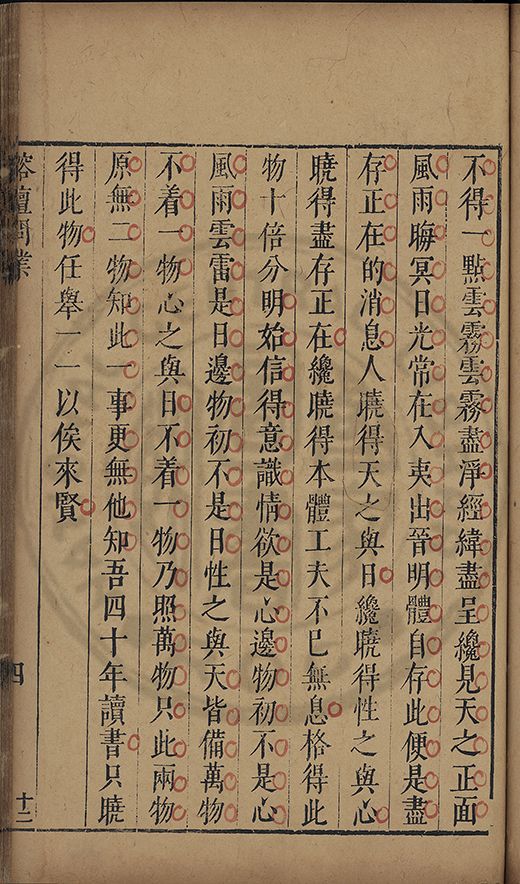 不得一點雲霧雲霧盡淨經緯盡呈纔見天之正面
風雨晦冥日光常在入夷出晉明體自存此便是盡
存正在的消息人曉得天之與日纔曉得性之與心
曉得盡存正在纔曉得本體工夫不已無息格得此
物十倍分明始信得意識情欲是心邊物初不是心
風雨雲雷是日邊物初不是日性之與天皆備萬物
不着一物心之與日不着一物乃照萬物只此兩物
原無二物知此一事更無他知吾四十年讀書只曉
得此物任舉一一以俟來賢
榕壇問業
四
十二